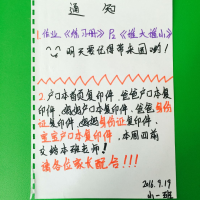 通知
1.作业《练习册》后《越大越小》
明天要记得带来园哟!
2.户口本首页复印件,爸爸户口本复
印件,妈妈户口本复印件,爸爸身份
证复印件,妈妈身份证复印件,
宝宝户口本复印件,本周四前
交给本班老师!
请各位家长配合!!!
2016.9.19
小一班